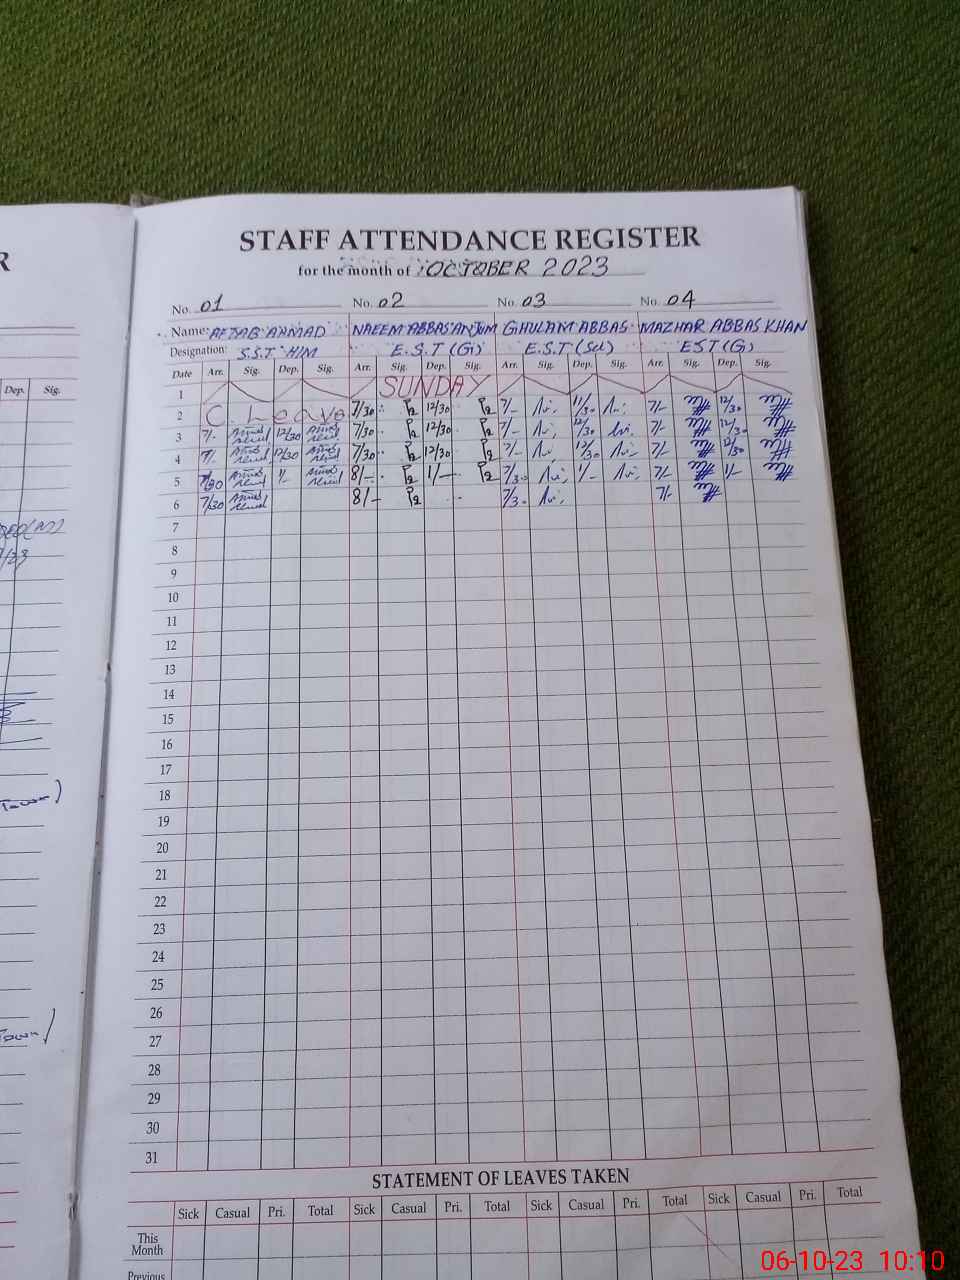 R
Dep. Sig.
Town)
Town)
STAFF ATTENDANCE REGISTER
for the month of OCTOBER 2023
No. 01 No. 02 No. 03 No. 04
Name: AFTAB AHMAD NAEEM ABBAS ANJUM GHULAM ABBAS MAZHAR ABBAS KHAN
Designation: S.S.T HIM E.S.T (G) E.S.T (Sci) EST (G)
Date Arr. Sig. Dep. Sig. Arr. Sig. Dep. Sig. Arr. Sig. Dep. Sig. Arr. Sig. Dep. Sig.
1 SUNDAY
2 C. Leave 7/30 12/30 7/- 11/30 7/- 12/30
3 7/- 12/30 7/30 12/30 7/- 12/30 7/- 12/30
4 7/- 12/30 7/30 12/30 7/- 12/30 7/- 12/30
5 7/30 1/- 8/- 1/- 7/30 1/- 7/- 1/-
6 7/30 8/- 7/30 7/-
7
8
9
10
11
12
13
14
15
16
17
18
19
20
21
22
23
24
25
26
27
28
29
30
31
STATEMENT OF LEAVES TAKEN
Sick Casual Pri. Total Sick Casual Pri. Total Sick Casual Pri. Total Sick Casual Pri. Total
This
Month
Previous
06-10-23 10:10